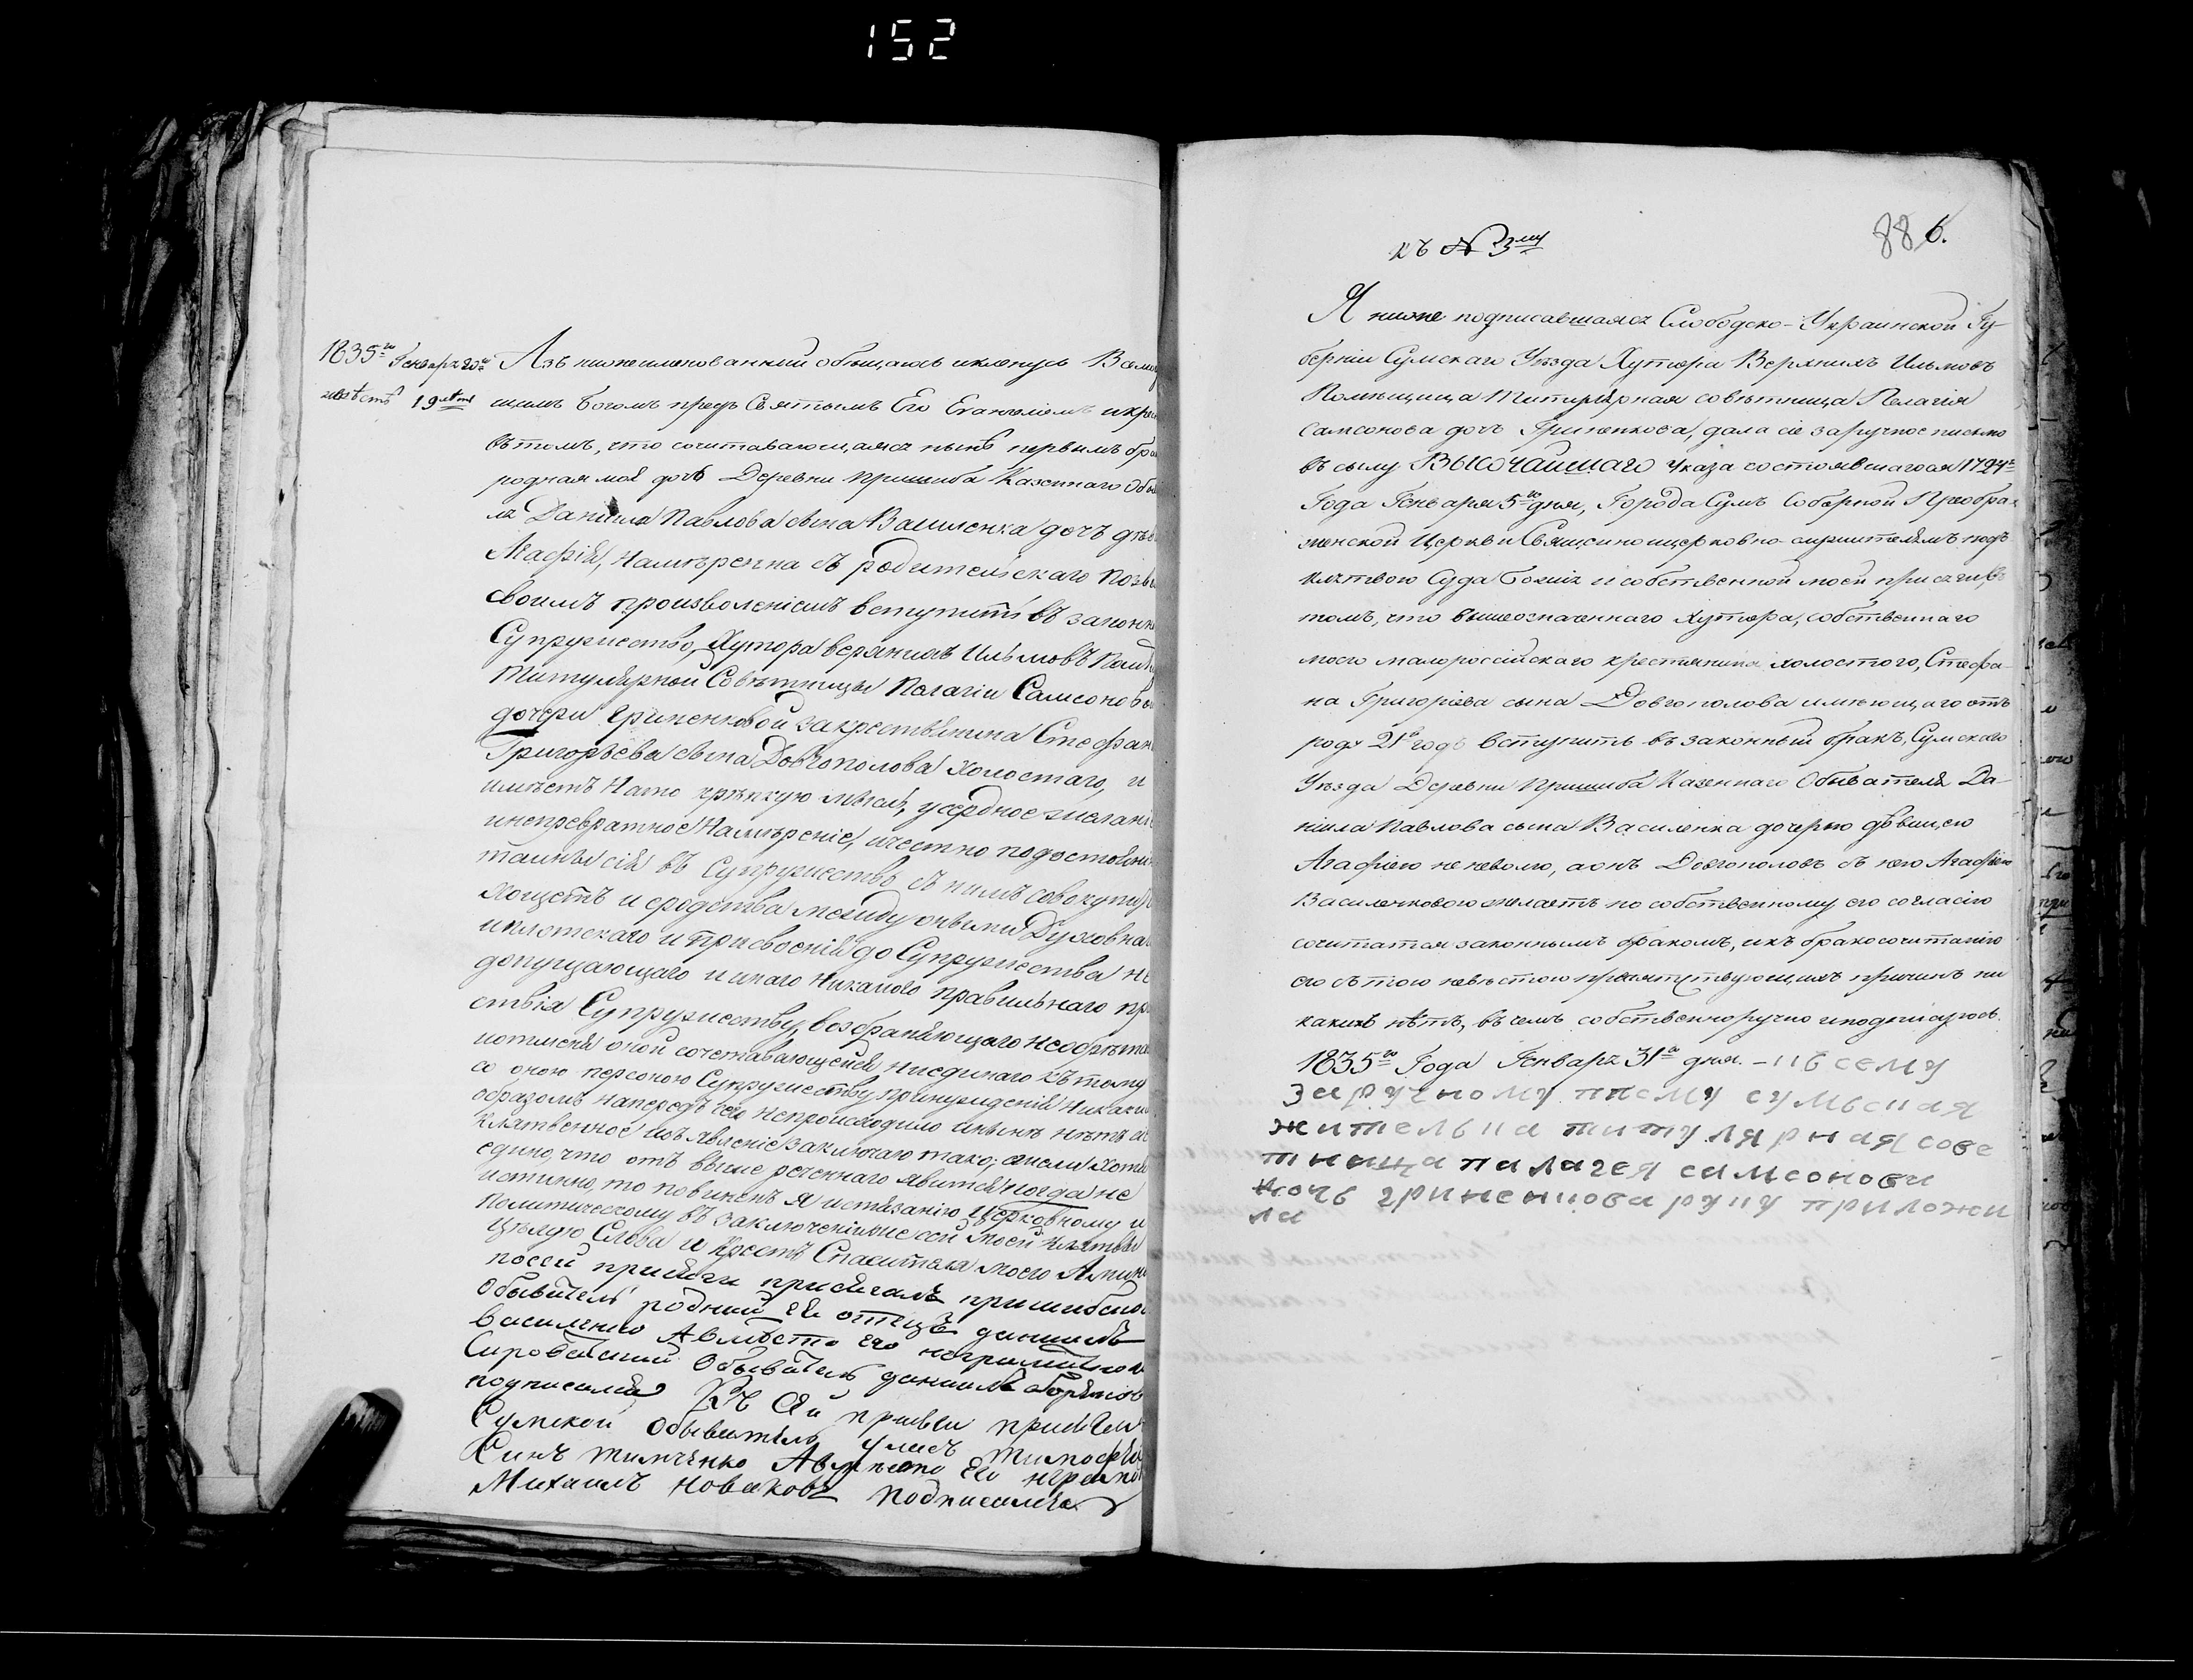 152
1835го Генваря 20го Азъ нижеименованный обещаюсь и клянусь Всемогу
невѣстѣ 19 лѣтъ щимъ Богомъ предъ Святымъ Его Евангелiемъ и кре
въ томъ, что сочитавающаяся нынѣ первымъ бра
родная моя дочь Деревни Пришиба Казеннаго Обы
ля Данiила Павлова сына Василенка дочь дѣв
Агафiя, Намѣренна съ родительскаго позв
своимъ произволенiемъ вступить въ законн
Супружество, Хутора верхнихъ Ильмовъ Пом
Титулярной Совѣтницы Пелагiи Самсоново
дочери Гриненковой за крестьянина Стефан
Григорьева сына Довгополова холостаго, и
имѣетъ на то крѣпкую мысль, усердное желанi
и непревратное Намѣренiе, и честно по достоинс
тайны сiя въ Супружество съ нимъ совокупи
хощетъ и сродства между оными Духовна
и плотскаго и присвоенiя до Супружества не
допущающаго и инаго никакого правильнаго пр
ствiя Супружеству, возбраняющаго необрѣта
и отменя оной сочетавающейся ни единаго къ тому
со оною персоною Супружеству принужденiя никаки
образомъ напередъ сего непроисходило и нынѣ нѣтъ
клятвенное изъявленiе заключаю тако; ежели хотя
едино, что отъ выше реченнаго явится когда не
истинно, то повиненъ я истязанiю Церковному и
Политическому въ заключенiи же сей моей клятвы
Цѣлую Слова и Крестъ Спасителя моего Аминь
посей присяги присягалъ пришибско
Обыватель родный ея отецъ данiилъ
василенко Авместо его неграмотно
Сироватский Обыватель данiилъ
подписался Къ сей присяги присяга
Сумской Обыватель Тимофей
Синъ Тимченко Авместо его неграмо
Михаилъ Новаковъ подписался
къ № 3му
88 6.
Я ниже подписавшаяся Слободско-Украинской Гу-
бернiи Сумскаго Уѣзда Хутора Верхнихъ Ильмовъ
Помѣщица Титулярная совѣтница Пелагiя
Самсонова дочь Гриненкова, дала сiе заручное письмо
въ силу Высочайшаго указа состоявшагося 1724го
Года Генваря 5го дня, Города Сумъ Соборной Преобра-
женской Церкви Священно и церковно-служителямъ подъ
клятвою Суда Божiя и собственной моей присяги, въ
томъ, что вышеозначеннаго хутора, собственнаго
моего малороссiйскаго крестьянина холостого, Стефа-
на Григорiева сына Довгополова имѣющаго отъ
роду 21й годъ вступить въ законный бракъ, Сумскаго
Уѣзда Деревни Пришиба Казеннаго Обывателя Да-
нiила Павлова сына Василенка дочерью дѣвицею
Агафiею не неволю, а онъ Довгополовъ съ нею Агафiею
Василенковою желаетъ по собственному его согласiю
сочитатся законнымъ бракомъ, и къ бракосочитанiю
его съ тою невѣстою препятствующихъ причинъ ни
какихъ нѣтъ, въ чемъ собственноручно и подписуюсь.
1835го Года Генваря 31го дня. - къ сему
заручному писму сумьская
жителька титулярная сове
тница палагея самсонови
дочь гриненкова руку приложи
ла